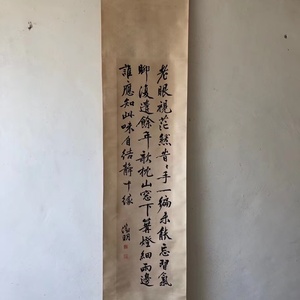 老眼視茫然旹〻手一編未能忘習氣
聊復遣餘年欹枕山窓下篝燈細雨邊
誰應知此味自結靜中緣
明